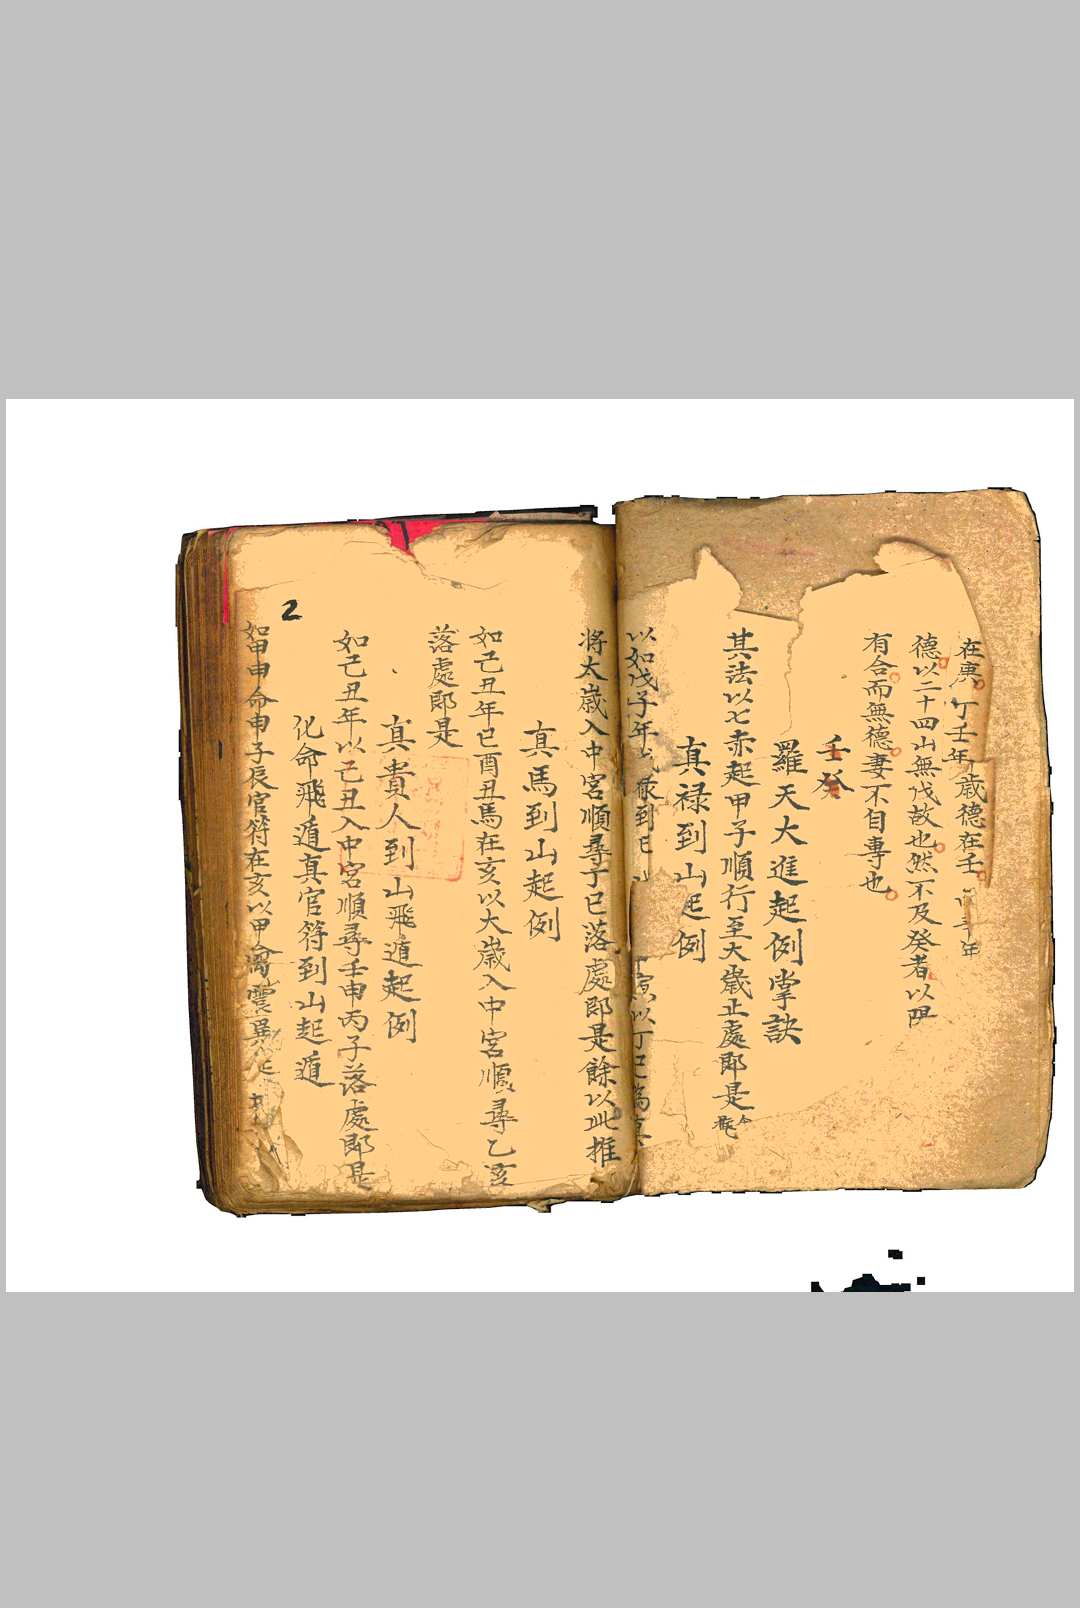 在庚丁壬年歲德在壬辛年
德以二十四山無戊故也然不及癸者以陽
有合而無德妻不自專也
壬癸
羅天大進起例掌訣
其法以七赤起甲子順行至大歲止處即是
真禄到山起例
以如戊子年禄到以丁巳為真
將太歲入中宮順尋丁巳落處即是餘以此推
真馬到山起例
如己丑年巳酉丑馬在亥以大歲入中宮順尋乙亥
落處即是
真貴人到山飛遁起例
如己丑年以己丑入中宮順尋壬申丙子落處即是
化命飛遁真官符到山起遁
如甲申命申子辰官符在亥以甲
2